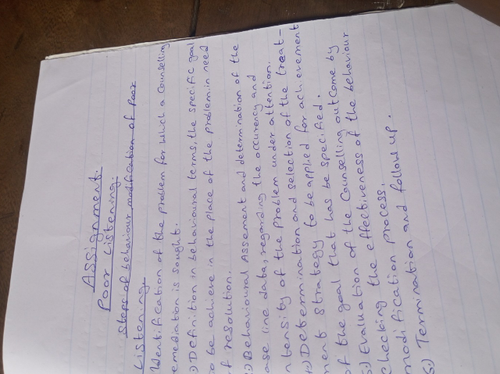 Assignment
Poor Listening.
Steps of behaviour modification of Poor
Listening
identification of the problem for which a Counselling
remediation is sought.
) Definition in behavioural terms, the specific goal
to be achieve in the place of the problem in need
of resolution.
) Behavioural Assesment and determination of the
ase line data, regarding the occurency and
ntensity of the problem under attention.
) Determination and selection of the treat-
ment strategy to be applied for achievement
of the goal that has be specified.
5) Evaluation of the Counselling outcome by
checking the effectiveness of the behaviour
modification process.
6) Termination and follow up.